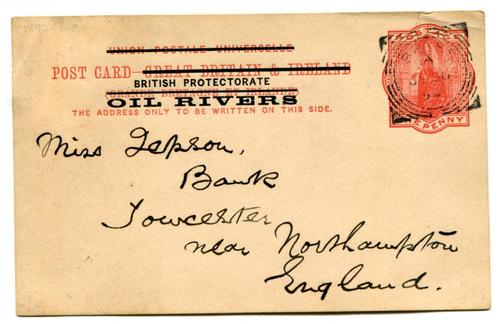 UNION POSTALE UNIVERSELLE
POST CARD - GREAT BRITAIN & IRELAND
BRITISH PROTECTORATE
GRANDE BRETAGNE ET IRLANDE
OIL RIVERS
THE ADDRESS ONLY TO BE WRITTEN ON THIS SIDE.
Miss Jepson,
Bank
Towcester
near Northampton
England.
PENNY